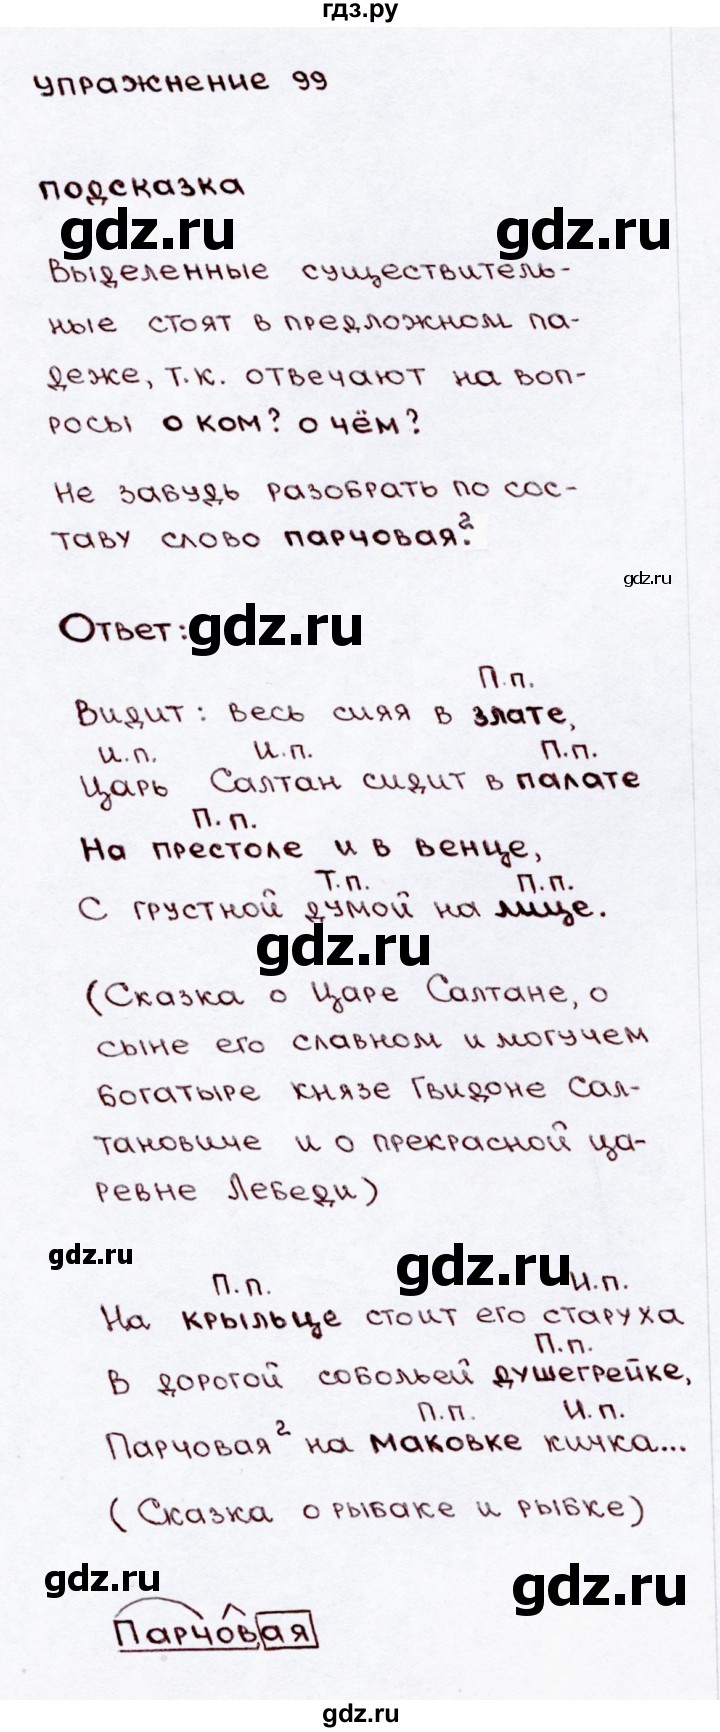 гдз.ру
упражнение 99
подсказка
gdz.ru gdz.ru
Выделенные существитель-
ные стоят в предложном па-
деже, т.к. отвечают на воп-
росы о ком? о чём?
Не забудь разобрать по сос-
таву слово парчовая².
gdz.ru
Ответ: gdz.ru
П.п.
Видит: весь сияя в злате,
И.п. И.п. П.п.
Царь Салтан сидит в палате
П.п.
На престоле и в венце,
Т.п. П.п.
С грустной думой на лице.
gdz.ru
(Сказка о Царе Салтане, о
сыне его славном и могучем
богатыре князе Гвидоне Сал-
тановиче и о прекрасной ца-
ревне Лебеди)
gdz.ru gdz.ru
П.п. И.п.
На крыльце стоит его старуха
П.п.
В дорогой собольей душегрейке,
П.п. И.п.
Парчовая² на маковке кичка...
(Сказка о рыбаке и рыбке)
gdz.ru gdz.ru
Парчовая
gdz.ru